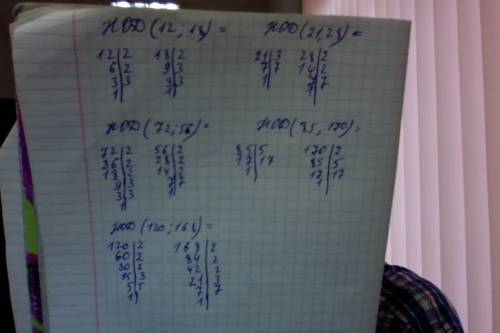 НОД (12; 18) =
12|2
6|2
3|3
1|
18|2
9|3
3|3
1|
НОД (21, 28) =
21|3
7|7
1|
28|2
14|2
7|7
1|
НОД (72; 56) =
72|2
36|2
18|2
9|3
3|3
1|
56|2
28|2
14|2
7|7
1|
НОД (85, 170) =
85|5
17|17
1|
170|2
85|5
17|17
1|
НОД (120; 168) =
120|2
60|2
30|2
15|3
5|5
1|
168|2
84|2
42|2
21|3
7|7
1|